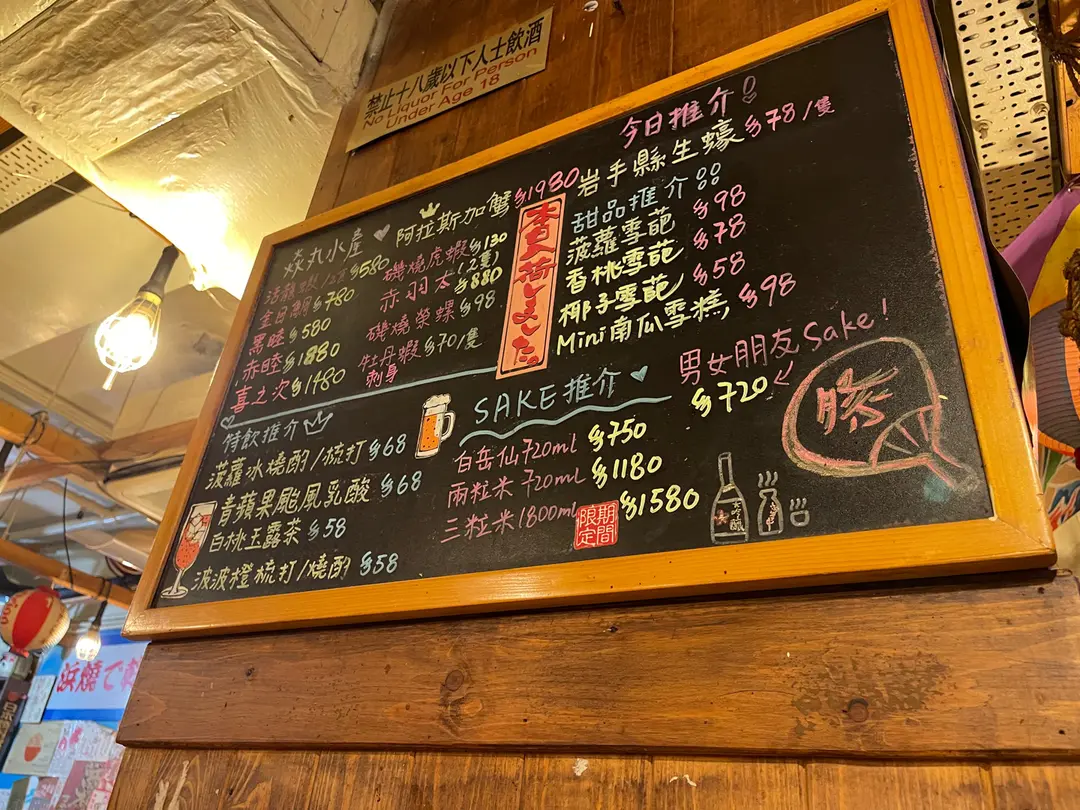 禁止十八歲以下人士飲酒
No Liquor For Person
Under Age 18
今日推介!
岩手縣生蠔 $78/隻
阿拉斯加蟹 $1980
焱丸水產
$580
金目鯛 $780
黑睦 $580
赤睦 $1880
喜之次 $1480
磯燒虎蝦 $130
(2隻)
赤羽太 $880
磯燒榮螺 $98
牡丹蝦 $70/隻
刺身
甜品推介
菠蘿雪葩 $98
香桃雪葩 $78
椰子雪葩 $58
Mini南瓜雪糕 $98
特飲推介
菠蘿冰燒酎/梳打 $68
青蘋果颱風乳酸 $68
白桃玉露茶 $58
波波橙梳打/燒酎 $58
SAKE推介
白岳仙720ml $750
兩粒米 720ml $1180
三粒米1800ml $1580
期間
限定
男女朋友Sake!
$720
勝
浜燒で